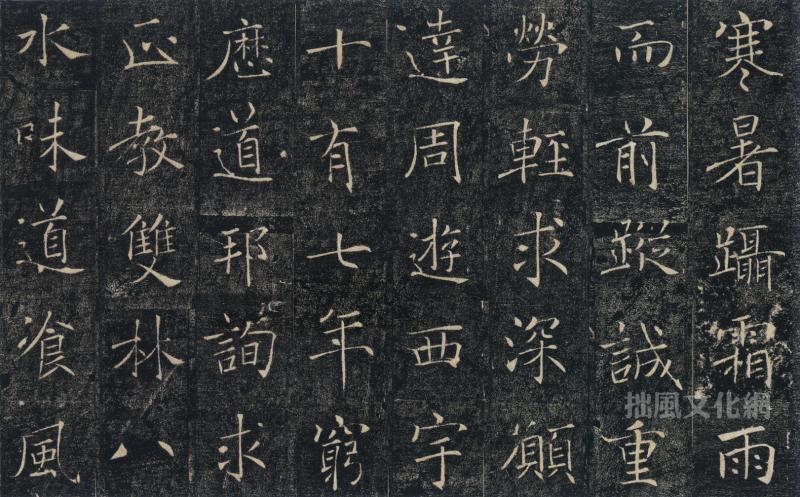 寒暑躡霜雨
而前蹤誠重
勞輕求深願
達周遊西宇
十有七年窮
歷道邦詢求
正教雙林八
水味道飡風
拙風文化網